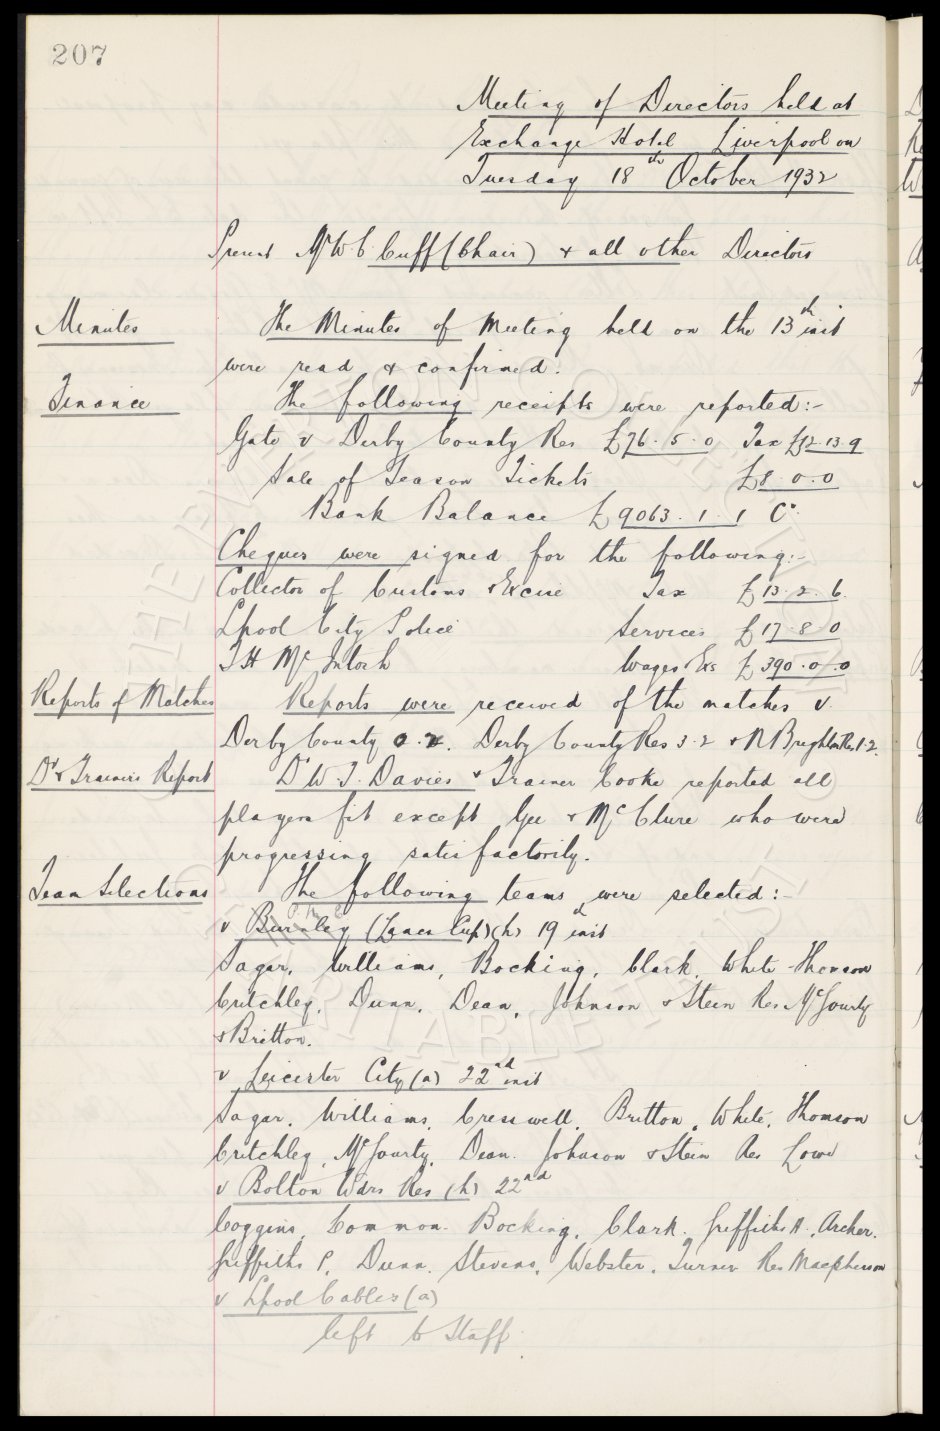 207
Meeting of Directors held at
Exchange Hotel Liverpool on
Tuesday 18th October 1932
Present Mr W. C. Cuff (Chair) & all other Directors
Minutes The Minutes of Meeting held on the 13th inst
were read & confirmed.
Finance The following receipts were reported:-
Gate v Derby County Res £76.5.0 Tax £12.13.9
Sale of Season Tickets £8.0.0
Bank Balance £9063.1.1 Cr
Cheques were signed for the following:-
Collector of Customs & Excise Tax £13.2.6
Lpool City Police Services £17.8.0
T H McIntosh Wages & Exs £390.0.0
Reports of Matches Reports were received of the matches v
Derby County 0.2. Derby County Res 3.2 & N Brighton Res 1.2.
Dr & Trainers Report Dr W. J. Davies & Trainer Cooke reported all
players fit except Gee & McClure who were
progressing satisfactorily.
Team Selections The following teams were selected:-
v Burnley (Lancs Cup) (h) 19th inst
Sagar, Williams, Bocking, Clark, White Thomson
Critchley, Dunn, Dean, Johnson & Stein Res McGourty
& Britton.
v Leicester City (a) 22nd inst
Sagar, Williams, Cresswell, Britton, White, Thomson
Critchley, McGourty, Dean. Johnson & Stein Res Lowe
v Bolton Wdrs Res (h) 22nd
Coggins, Common. Bocking, Clark, Griffiths H., Archer.
Griffiths P. Dunn. Stevens, Webster. Turner Res Macpherson
v Lpool Cables (a)
left to Staff.